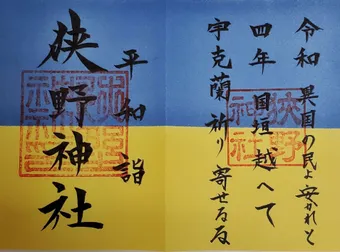 令和 異国の民よ安かれと
四年 国垣越へて
宇克蘭祈り寄せるな
平和詣
狭野神社
狭野
神社